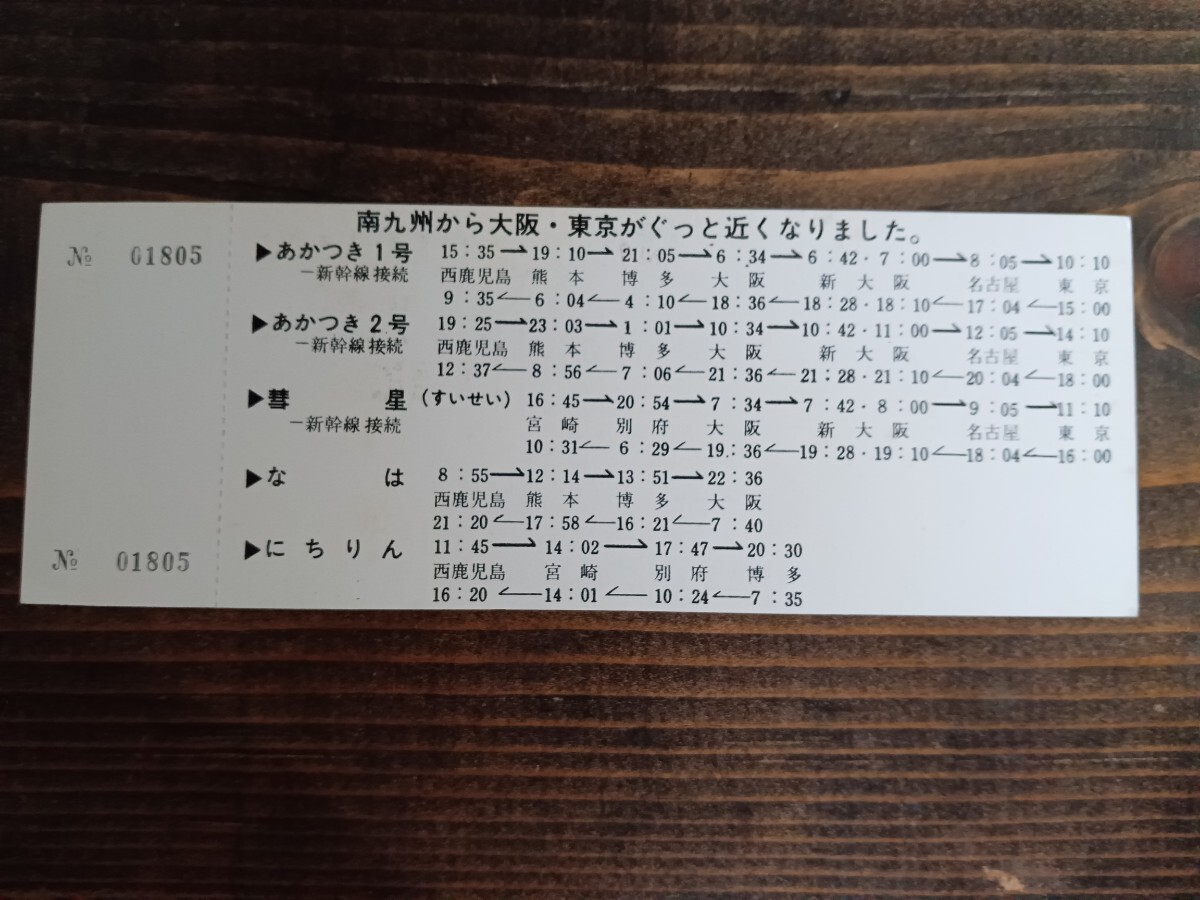 南九州から大阪・東京がぐっと近くなりました。
№ 01805
▶あかつき1号 15:35→19:10→21:05→6:34→6:42・7:00→8:05→10:10
―新幹線接続 西鹿児島 熊本 博多 大阪 新大阪 名古屋 東京
9:35←6:04←4:10←18:36←18:28・18:10←17:04←15:00
▶あかつき2号 19:25→23:03→1:01→10:34→10:42・11:00→12:05→14:10
―新幹線接続 西鹿児島 熊本 博多 大阪 新大阪 名古屋 東京
12:37←8:56←7:06←21:36←21:28・21:10←20:04←18:00
▶彗星(すいせい) 16:45→20:54→7:34→7:42・8:00→9:05→11:10
―新幹線接続 宮崎 別府 大阪 新大阪 名古屋 東京
10:31←6:29←19:36←19:28・19:10←18:04←16:00
▶なは 8:55→12:14→13:51→22:36
西鹿児島 熊本 博多 大阪
21:20←17:58←16:21←7:40
▶にちりん 11:45→14:02→17:47→20:30
№ 01805
西鹿児島 宮崎 別府 博多
16:20←14:01←10:24←7:35